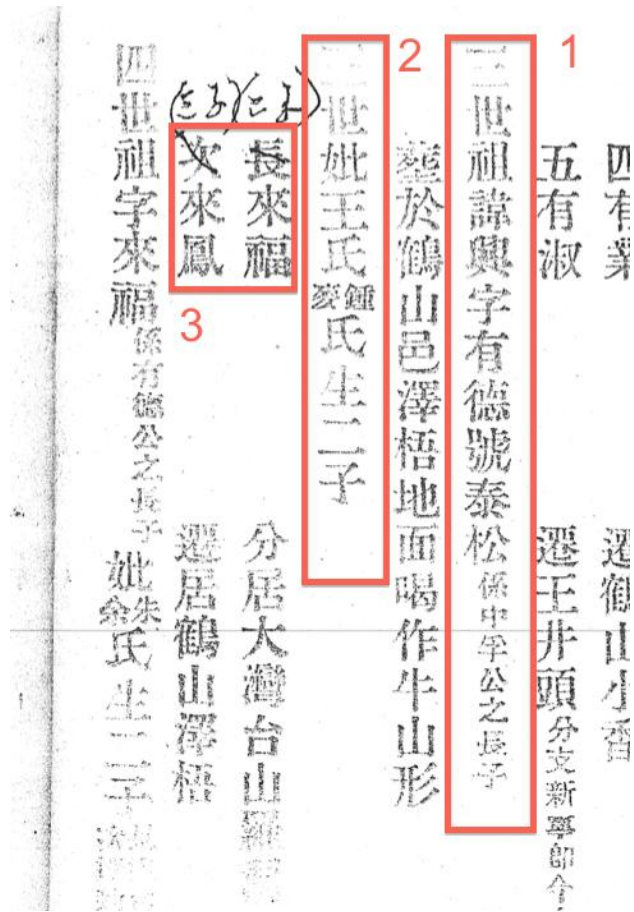 四有業 遷鶴山小
五有淑 遷王井頭分支新寧即今
1
三世祖諱興字有德號泰松係中孚公之長子
塟於鶴山邑澤梧地面喝作牛山形
2
三世妣王氏鍾麥氏生二子
長來福 分居大灣台山
次來鳳 遷居鶴山澤梧
3
四世祖字來福係有德公之長子 妣朱余氏生二子